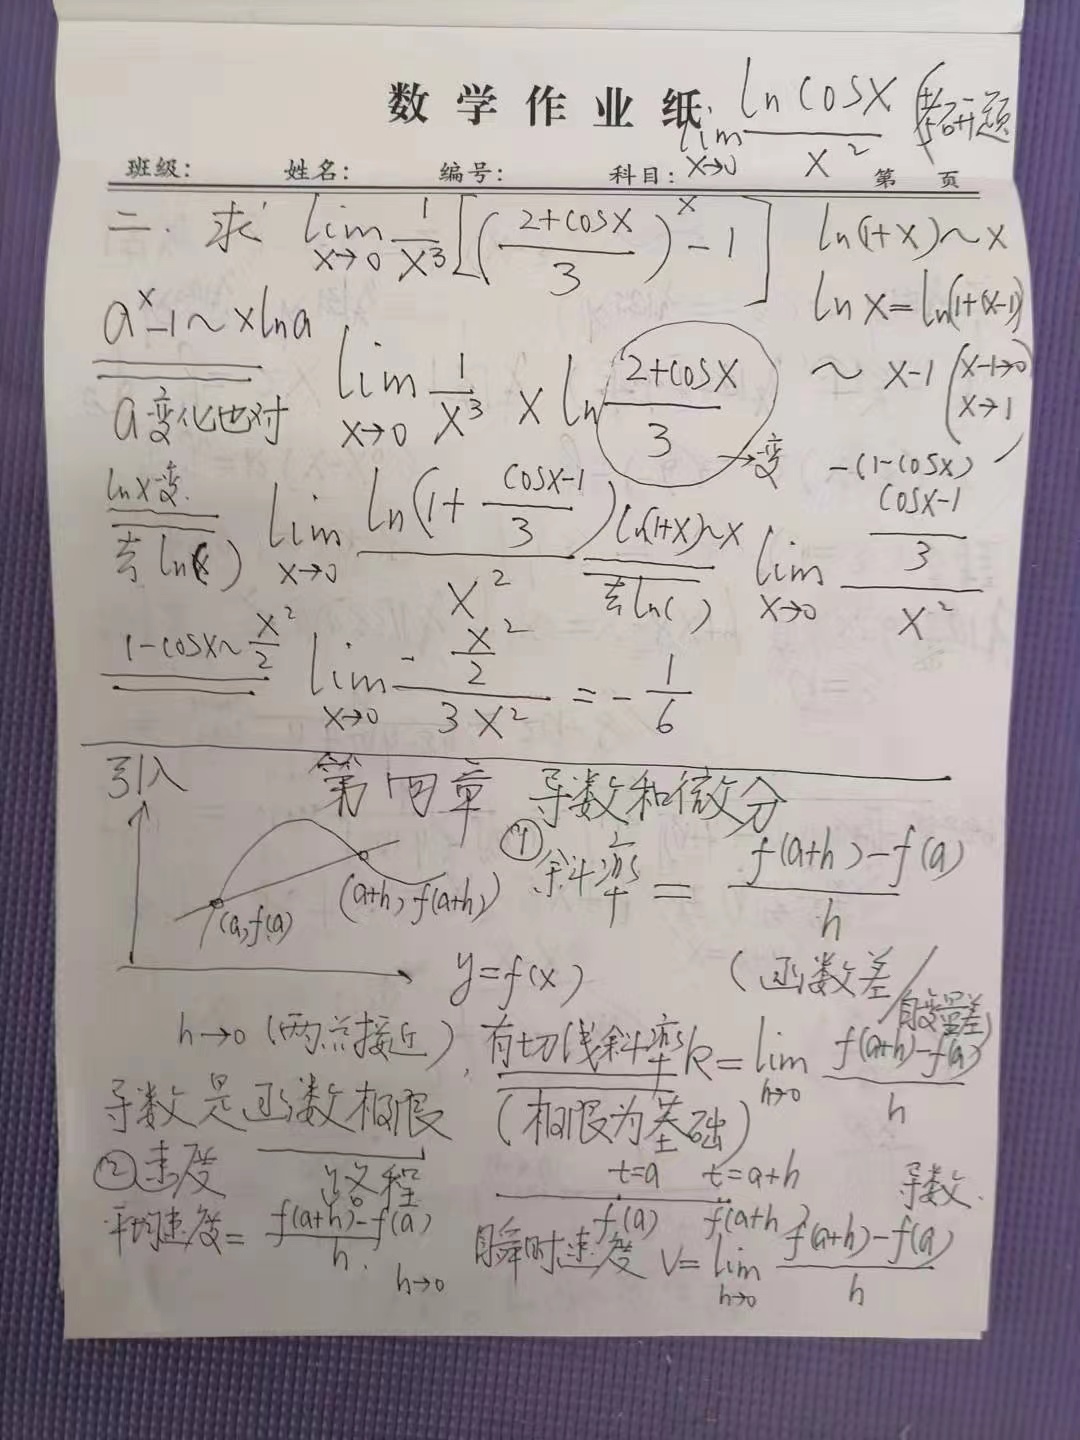 数学作业纸 lim x→0 ln cosx / x² (考研题)
班级: 姓名: 编号: 科目: 第 页
二. 求 lim x→0 1/x³ [((2+cosx)/3)^x - 1] ln(1+x)~x
ln x = ln(1+(x-1))
a^x-1 ~ x ln a lim x→0 1/x³ x ln (2+cosx)/3 →变 ~ x-1 (x-1→0 x→1)
a变化也对
-(1-cosx)
ln x变 去ln( ) lim x→0 ln(1+(cosx-1)/3) / x² ln(1+x)~x 去ln( ) lim x→0 ((cosx-1)/3) / x²
1-cosx ~ x²/2 lim x→0 (- x²/2) / 3x² = - 1/6
引入 第四章 导数和微分
① 斜率 = (f(a+h)-f(a)) / h
(a, f(a)) (a+h, f(a+h))
y=f(x) (函数差/自变量差)
h→0 (两点接近), 有切线斜率 k = lim h→0 (f(a+h)-f(a)) / h
导数是函数极限 (极限为基础)
② 速度 路程 t=a t=a+h 导数.
f(a) f(a+h)
平均速度 = (f(a+h)-f(a)) / h. h→0 瞬时速度 v = lim h→0 (f(a+h)-f(a)) / h